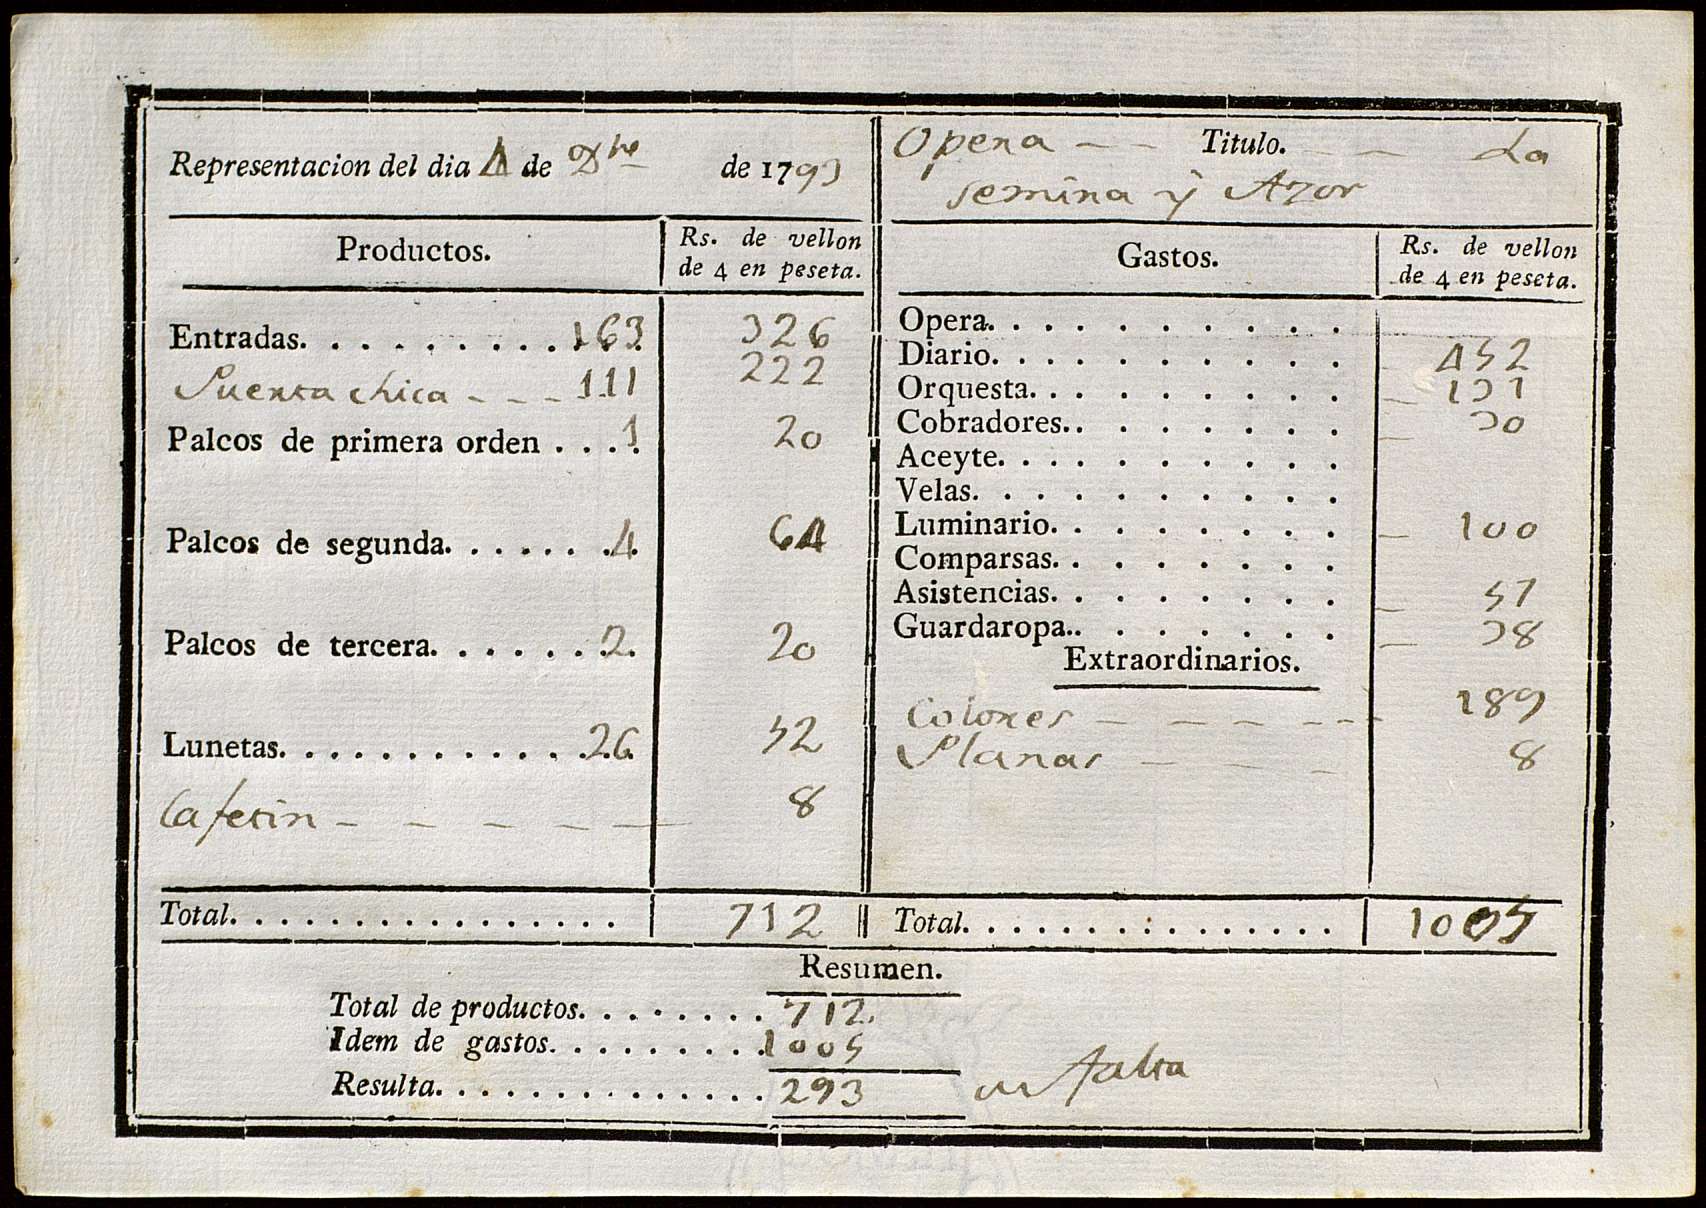 Representacion del dia 4 de Xbre de 1793
Opera - - Titulo. - - La
semira y Azor
Productos. Rs. de vellon de 4 en peseta.
Entradas. . . . . . . . . . 163 326
Puerta chica - - - 111 222
Palcos de primera orden . . . . 1 20
Palcos de segunda. . . . . . . 4 64
Palcos de tercera. . . . . . . 2 20
Lunetas. . . . . . . . . . . . 26 52
Cafetin - - - - - 8
Total. . . . . . . . . . . . . . . . 712
Gastos. Rs. de vellon de 4 en peseta.
Opera. . . . . . . . . . .
Diario. . . . . . . . . . . 452
Orquesta. . . . . . . . . . 131
Cobradores. . . . . . . . . 30
Aceyte. . . . . . . . . . .
Velas. . . . . . . . . . .
Luminario. . . . . . . . . 100
Comparsas. . . . . . . . .
Asistencias. . . . . . . . 57
Guardaropa. . . . . . . . . 38
Extraordinarios.
Colores - - - - - - 189
Planas - - - - 8
Total. . . . . . . . . . . . . . . . 1005
Resumen.
Total de productos. . . . . . . . 712
Idem de gastos. . . . . . . . . 1005
Resulta. . . . . . . . . . . . . . 293 falta